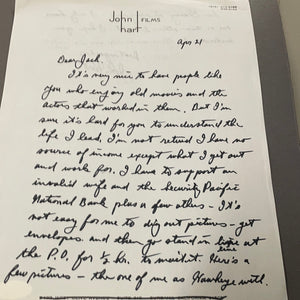 John | FILMS
hart
Apr 21
Dear Jack.
It's very nice to have people like
you who enjoy old movies and the
actors that worked in them. But I'm
sure it's hard for you to understand the
life I lead, I'm not retired I have no
source of income except what I get out
and work for. I have to support an
invalid wife and the Security Pacific
National Bank plus a few others - It's
not easy for me to dig out pictures - get
envelopes. and then go stand in line at
the P.O. for ½ hr. to mail it. Here's a
few pictures - the one of me as Hawkeye with.